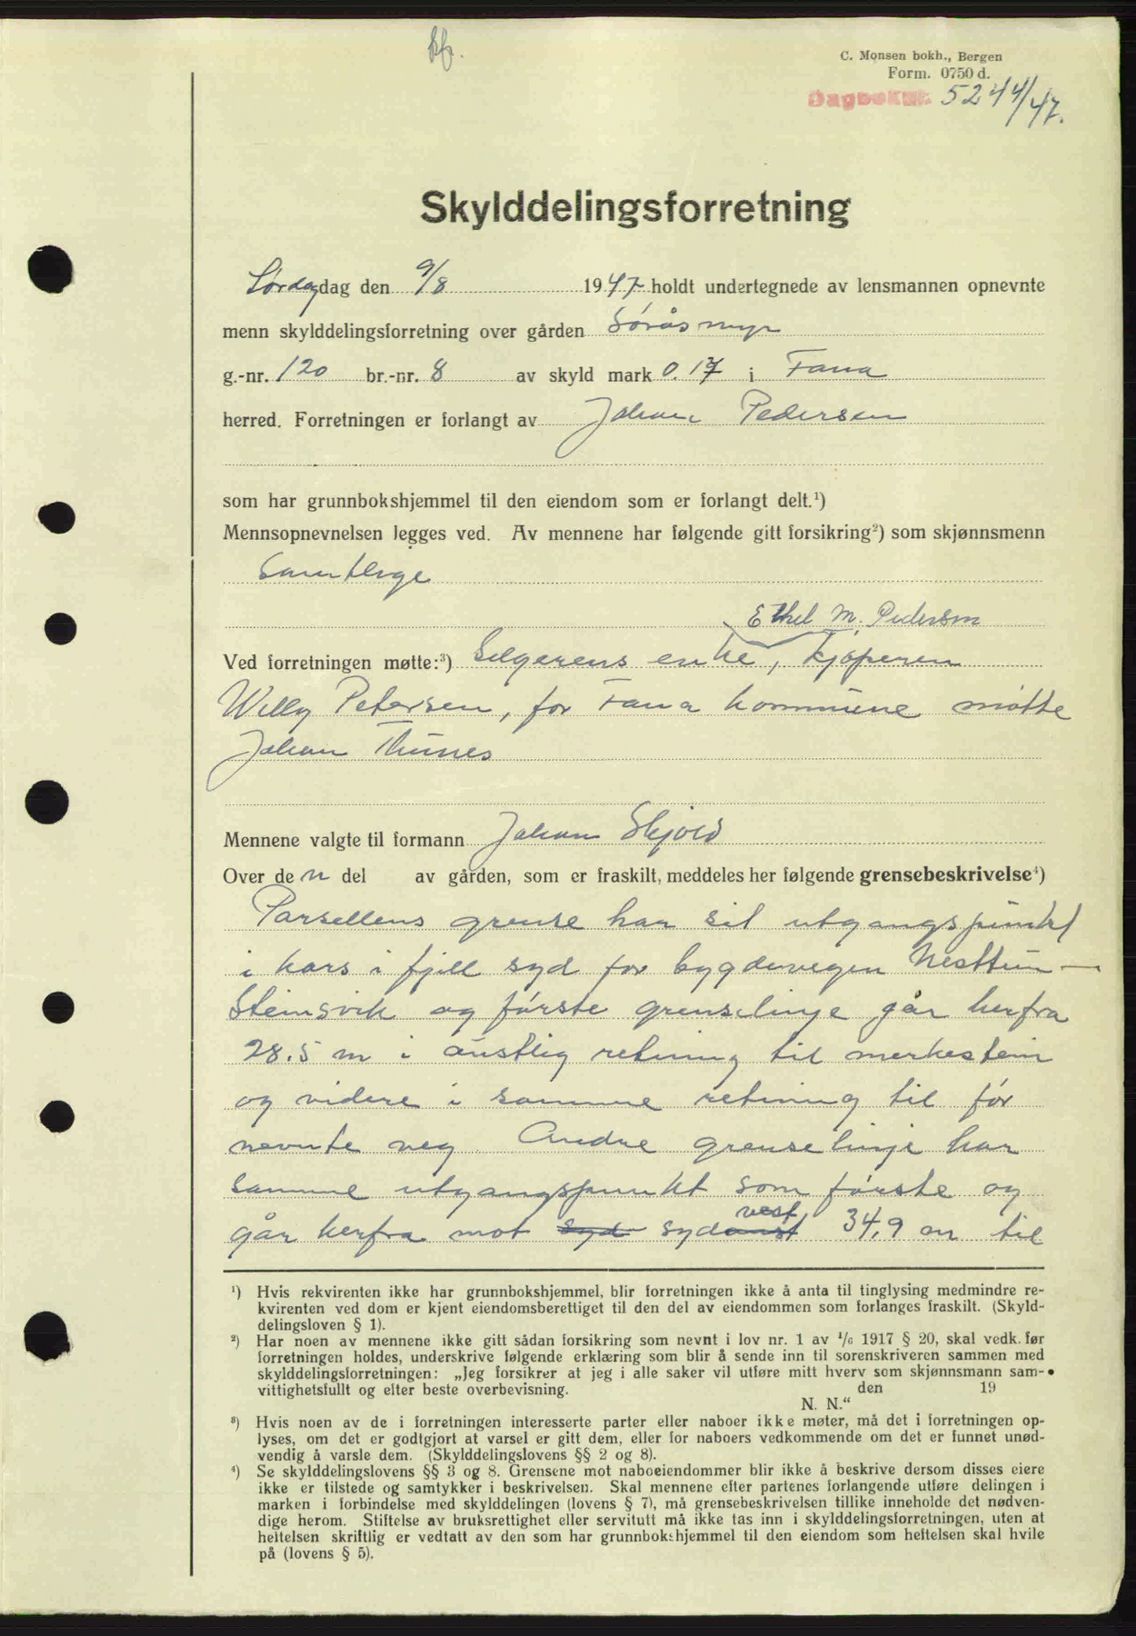 kfr.
C. Monsen bokh., Bergen
Form. 0750 d.
Dagbok nr. 5244/47.
Skylddelingsforretning
Lördagdag den 9/8 1947 holdt undertegnede av lensmannen opnevnte
menn skylddelingsforretning over gården Söråsmyr
g.-nr. 120 br.-nr. 8 av skyld mark 0.17 i Fana
herred. Forretningen er forlangt av Johan Pedersen
som har grunnbokshjemmel til den eiendom som er forlangt delt.¹)
Mennsopnevnelsen legges ved. Av mennene har følgende gitt forsikring²) som skjønnsmenn
Samtlige
Ethel M. Pedersen
Ved forretningen møtte:³) Selgerens enke, kjøperen
Willy Petersen, for Fana kommune møtte
Johan Thunes
Mennene valgte til formann Johan Skjold
Over den del av gården, som er fraskilt, meddeles her følgende grensebeskrivelse⁴)
Parsellens grense har sit utgangspunkt
i kors i fjell syd for bygdevegen Nesttun —
Steinsvik og förste grenselinje går herfra
28.5 m i austlig retning til merkestein
og videre i samme retning til før
nevnte veg. Andre grenselinje har
samme utgangspunkt som förste og
går herfra mot syd sydaust vest 34,9 m til
¹) Hvis rekvirenten ikke har grunnbokshjemmel, blir forretningen ikke å anta til tinglysing medmindre re-
kvirenten ved dom er kjent eiendomsberettiget til den del av eiendommen som forlanges fraskilt. (Skyld-
delingsloven § 1).
²) Har noen av mennene ikke gitt sådan forsikring som nevnt i lov nr. 1 av 1/6 1917 § 20, skal vedk. før
forretningen holdes, underskrive følgende erklæring som blir å sende inn til sorenskriveren sammen med
skylddelingsforretningen: „Jeg forsikrer at jeg i alle saker vil utføre mitt hverv som skjønnsmann sam-
vittighetsfullt og efter beste overbevisning. den 19
N. N.“
³) Hvis noen av de i forretningen interesserte parter eller naboer ikke møter, må det i forretningen op-
lyses, om det er godtgjort at varsel er gitt dem, eller for naboers vedkommende om det er funnet unød-
vendig å varsle dem. (Skylddelingslovens §§ 2 og 8).
⁴) Se skylddelingslovens §§ 3 og 8. Grensene mot naboeiendommer blir ikke å beskrive dersom disses eiere
ikke er tilstede og samtykker i beskrivelsen. Skal mennene efter partenes forlangende utføre delingen i
marken i forbindelse med skylddelingen (lovens § 7), må grensebeskrivelsen tillike inneholde det nødven-
dige herom. Stiftelse av bruksrettighet eller servitutt må ikke tas inn i skylddelingsforretningen, uten at
heftelsen skriftlig er vedtatt av den som har grunnbokshjemmel til den eiendom som heftelsen skal hvile
på (lovens § 5).